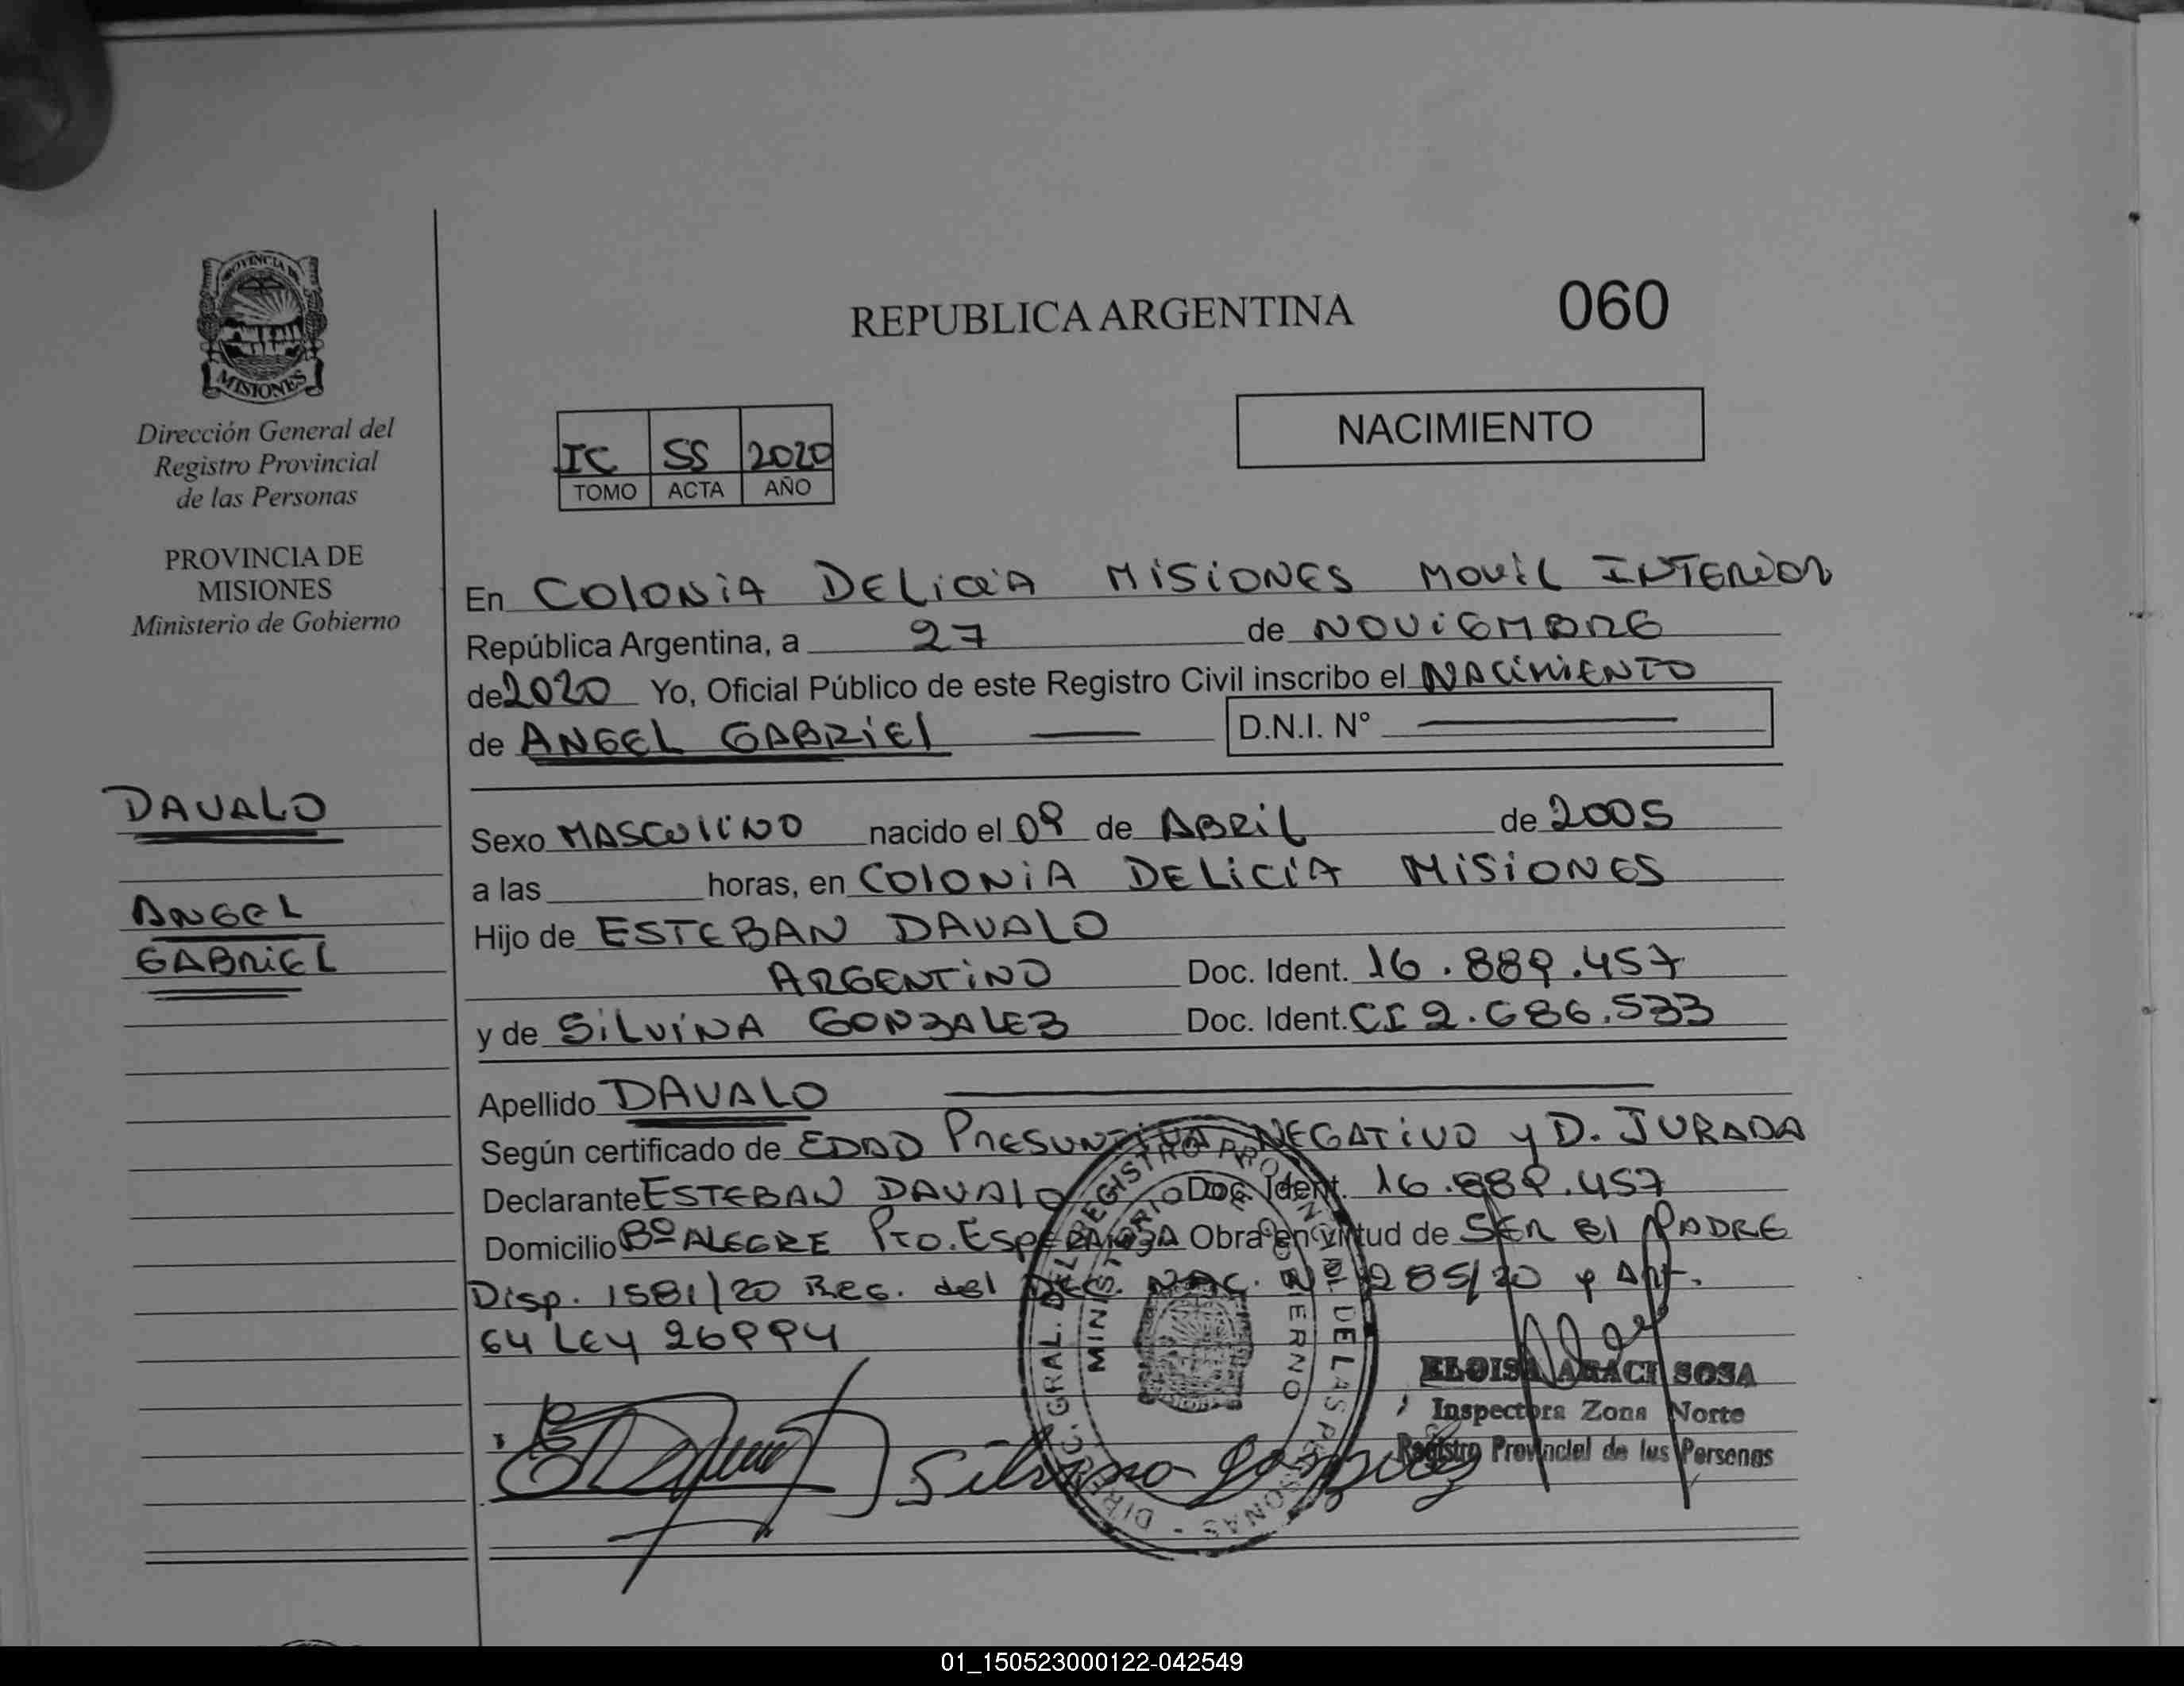 PROVINCIA DE
MISIONES
Dirección General del
Registro Provincial
de las Personas
PROVINCIA DE
MISIONES
Ministerio de Gobierno
DAVALO
ANGEL
GABRIEL
REPUBLICA ARGENTINA
060
NACIMIENTO
IC SS 2020
TOMO ACTA AÑO
En COLONIA DELICIA MISIONES MOVIL INTERIOR
República Argentina, a 27 de NOVIEMBRE
de 2020 Yo, Oficial Público de este Registro Civil inscribo el NACIMIENTO
de ANGEL GABRIEL D.N.I. N°
Sexo MASCULINO nacido el 09 de ABRIL de 2005
a las horas, en COLONIA DELICIA MISIONES
Hijo de ESTEBAN DAVALO
ARGENTINO Doc. Ident. 16.889.457
y de SILVINA GONZALEZ Doc. Ident. CI 2.686.533
Apellido DAVALO
Según certificado de EDAD PRESUNTIVA NEGATIVO y D. JURADA
Declarante ESTEBAN DAVALO Doc. Ident. 16.889.457
Domicilio Bº ALEGRE PTO. ESPERANZA Obra en virtud de SER El PADRE
Disp. 1581/20 REG. del DEC. NAC. Nº 1285/20 y Art.
64 LEY 26994
DIREC. GRAL. DEL REGISTRO PROVINCIAL DE LAS PERSONAS
MINISTERIO DE GOBIERNO
ELOISA ARACI SOSA
Inspectora Zona Norte
Registro Provincial de las Personas
Silvina Gonzalez
01_150523000122-042549